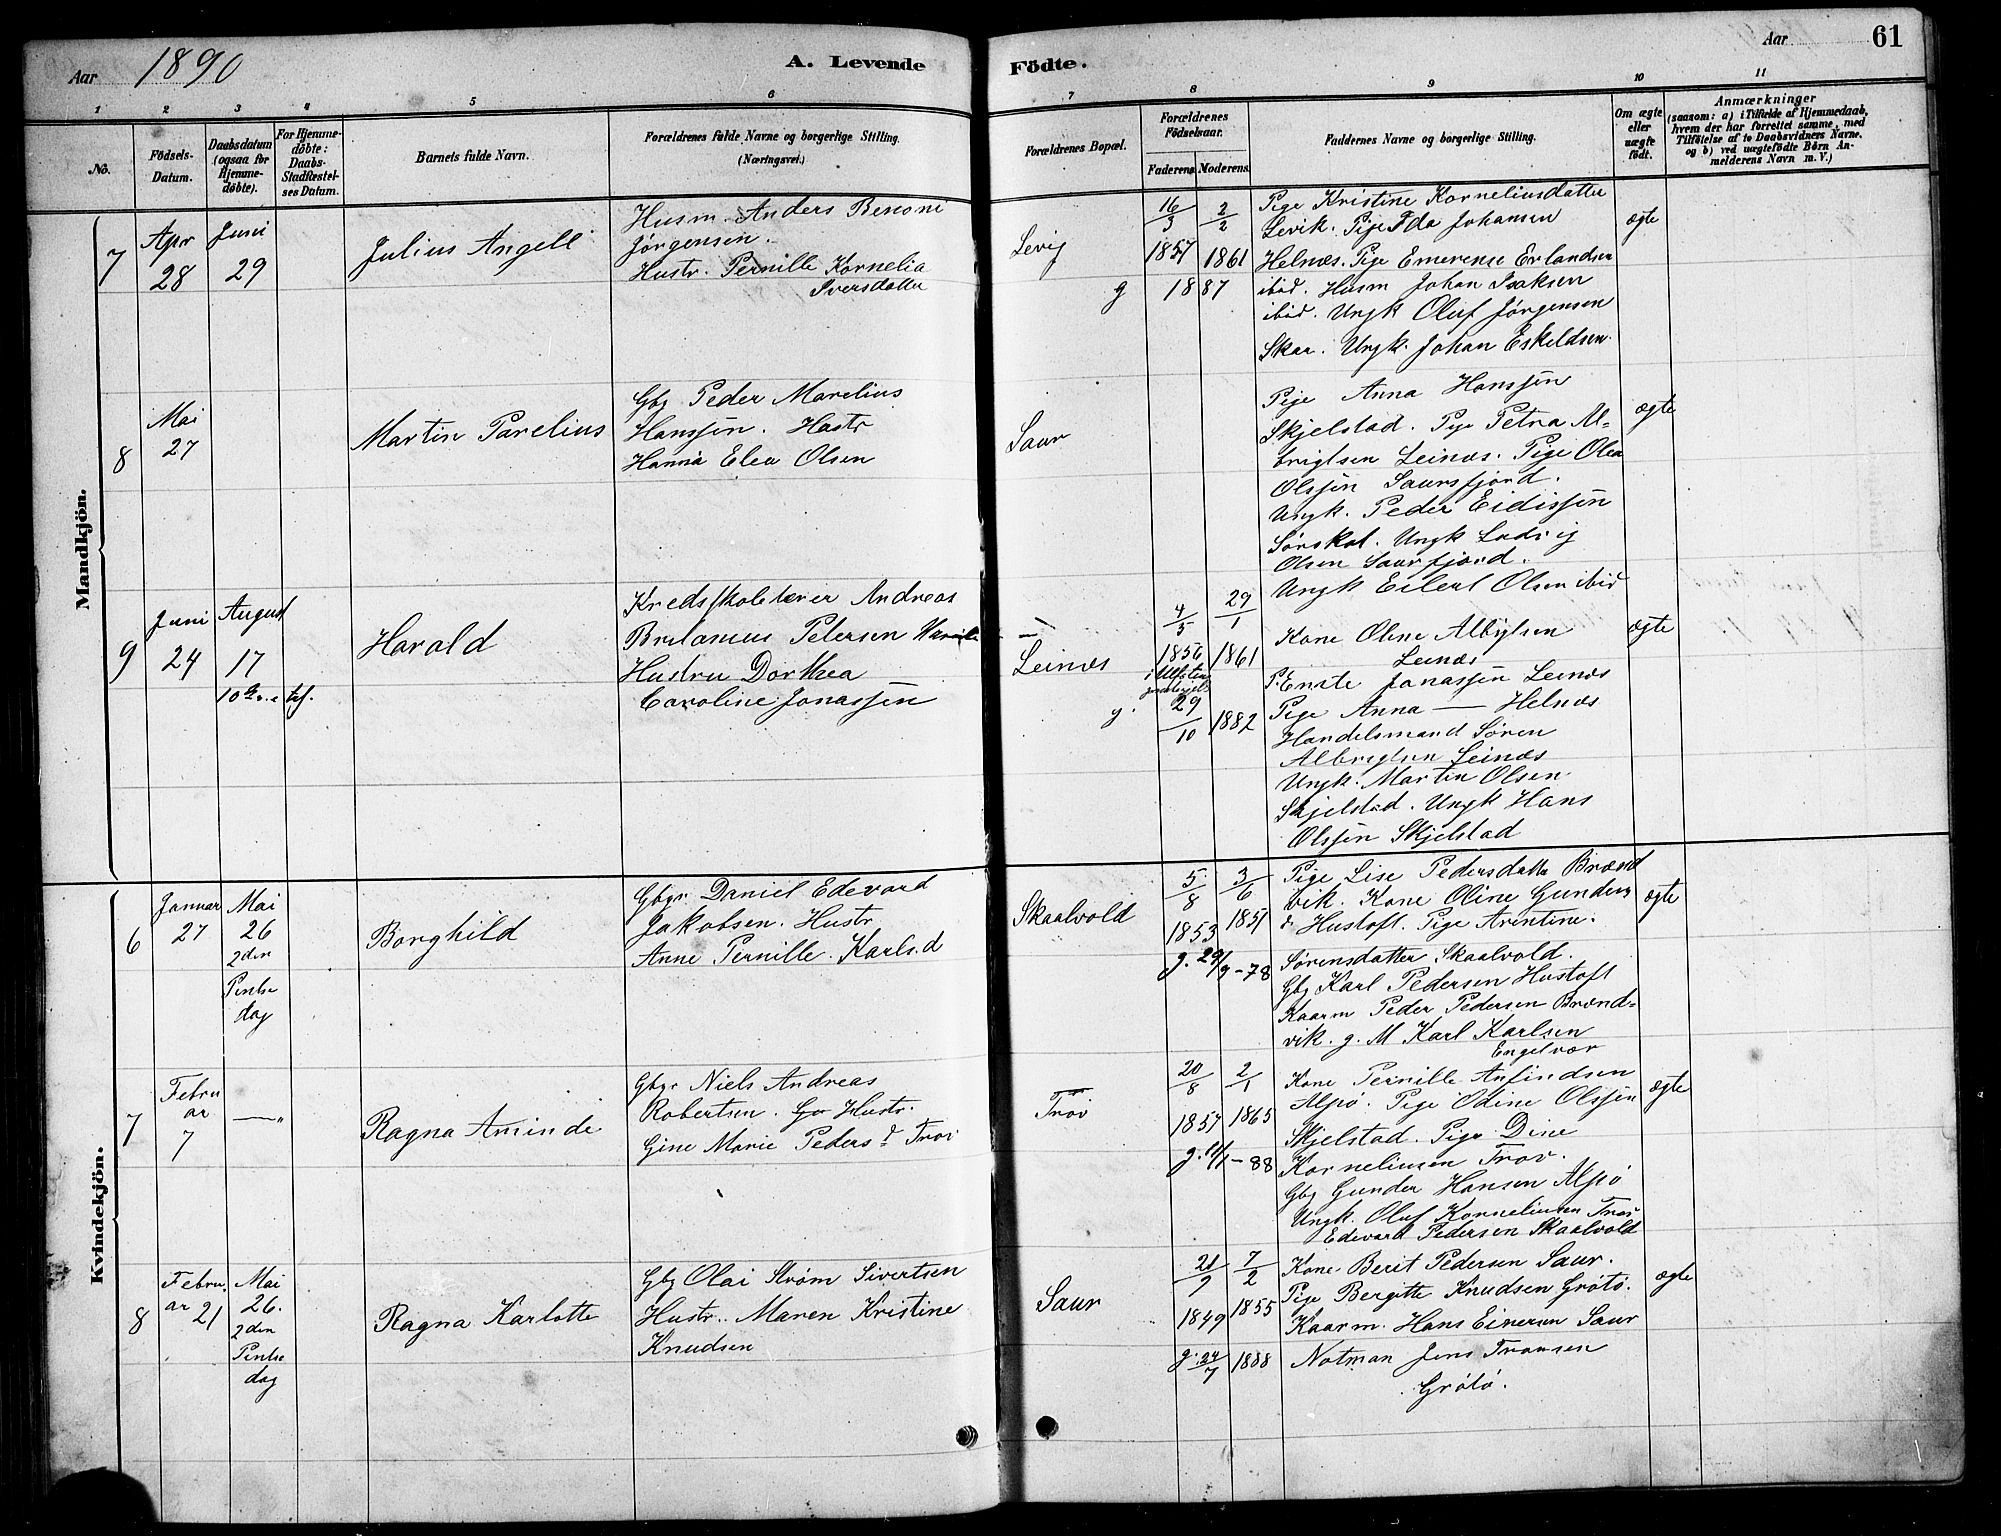 Aar 1890
A. Levende Födte.
Aar 61
1 2 3 4 5 6 7 8 9 10 11
No.
Födsels-
Datum.
Daabsdatum
(ogsaa for
Hjemme-
døbte).
For Hjemme-
døbte:
Daabs-
Stadfæstel-
ses Datum.
Barnets fulde Navn.
Forældrenes fulde Navne og borgerlige Stilling.
(Næringsvei.)
Forældrenes Bopæl.
Forældrenes
Födselsaar.
Faderens Moderens
Faddernes Navne og borgerlige Stilling.
Om ægte
eller
uægte
født.
Anmærkninger
(saasom: a) i Tilfælde af Hjemmedaab,
hvem der har forrettet samme, med
Tilföielse af to Daabsvidners Navne.
og b) ved uægtefødte Børn An-
melderens Navn m. V.)
Mandkjön.
7
Apr
28
Juni
29
Julius Angell
Husm. Anders Benoni
Jørgensen.
Hustr. Pernille Kornelia
Iversdatter
Levig
16/3 2/2
1857 1861
g 1887
Pige Kristine Korneliusdatter
Levik. Pige Ida Johansen
Helnæs. Pige Emerense Erlandsen
ibid. Husm Johan Isaksen
ibid. Ungk Oluf Jørgensen
Skar. Ungk. Johan Eskeldsen.
ægte
8
Mai
27
Martin Parelius
Gbg Peder Marelius
Hanssen. Hustr
Hanna Elea Olsen
Saur
Pige Anna Hanssen
Skjelstad. Pige Petra Al-
brigtsen Leines. Pige Olea
Olssen Saursfjord.
Ungk. Peder Eidissen
Sørskot. Ungk Ludvig
Olsen Saurfjord.
Ungk Eilert Olsen ibid
ægte
9
Juni
24
August
17
Harald
Kredsskolelærer Andreas
Petersen
Hustru Dorthea
Caroline Jonassen
Leinæs
4/5 29/1
1856 1861
g. 29/10 1882
Kone Oline Albrigtsen
Leinæs
P. Enste Jonassen Leinæs
Pige Anna — Helnæs
Handelsmand Søren
Albrigtsen Leinæs
Ungk. Martin Olsen
Skjelstad. Ungk Hans
Olssen Skjelstad
ægte
Kvindekjön.
6
Januar
27
Mai
26
2den
Pintse
dag
Borghild
Gbgr. Daniel Edevard
Jakobsen. Hustr
Anne Pernille Karls.d
Skaalvold
5/8 3/6
1853 1851
g. 29/9 - 78
Pige Lise Pedersdatter Brænd
vik. Kone Oline Gunders
d. Hustoft. Pige Arentine.
Sørensdatter Skaalvold.
Gbg Karl Pedersen Hustoft
Kaarm Peder Pedersen Brænd-
vik. g. M Karl Karlsen
Engelvær
ægte
7
Febru
ar
7
—"
Ragna Aminde
Gbgr Niels Andreas
Robertsen. Hustr.
Gine Marie Peders d Trøi
Trøv
20/8 2/1
1857 1865
g. 11/1 - 88
Kone Pernille Anfindsen
Alpø. Pige Odine Olssen
Skjelstad. Pige Dine
Korneliusen Trøv.
Gbg Gunder Hansen Alpø
Ungk. Oluf Korneliusen Trøi
Edevard Pedersen Skaalvold
ægte
8
Febru
ar 21
Mai
26.
2den
Pintse
dag
Ragna Karlotte
Gbg Olai Strøm Sivertsen
Hustr. Maren Kristine
Knudsen
Saur
21/9 7/2
1849 1855
g. 24/7 1888
Kone Berit Pedersen Saur.
Pige Bergitte Knudsen Grøtø.
Kaarm. Hans Einersen Saur
Notman Jens Transen
Grøtø.
ægte